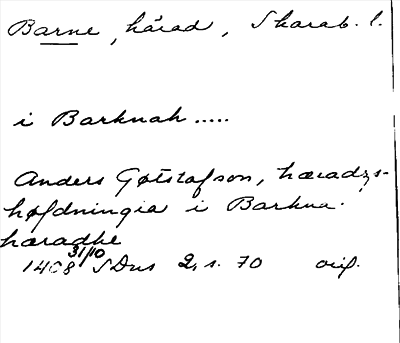 Barne, härad, Skarab. l.
i Barknah .....
Anders Gøtstafson, hæradzs-
høfdningia i Barkna
hæradhe
1408 31/10 SDns 2, s. 70 orig.